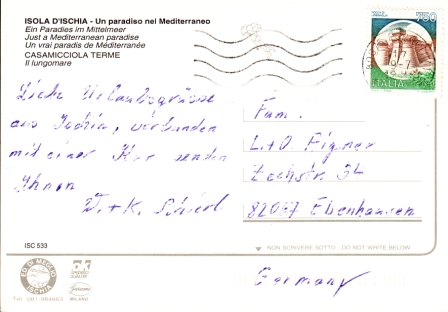 ISOLA D'ISCHIA - Un paradiso nel Mediterraneo
Ein Paradies im Mittelmeer
Just a Mediterranean paradise
Un vrai paradis de Méditerranée
CASAMICCIOLA TERME
Il lungomare
750
ITALIA
Liebe Urlaubsgrüsse
aus Ischia, verbunden
mit einer Kur senden
Ihnen
Fam.
L+O
82067 Ebenhausen
Germany
ISC 533
NON SCRIVERE SOTTO - DO NOT WRITE BELOW
ED. DI MEGLIO
ISCHIA
MILANO